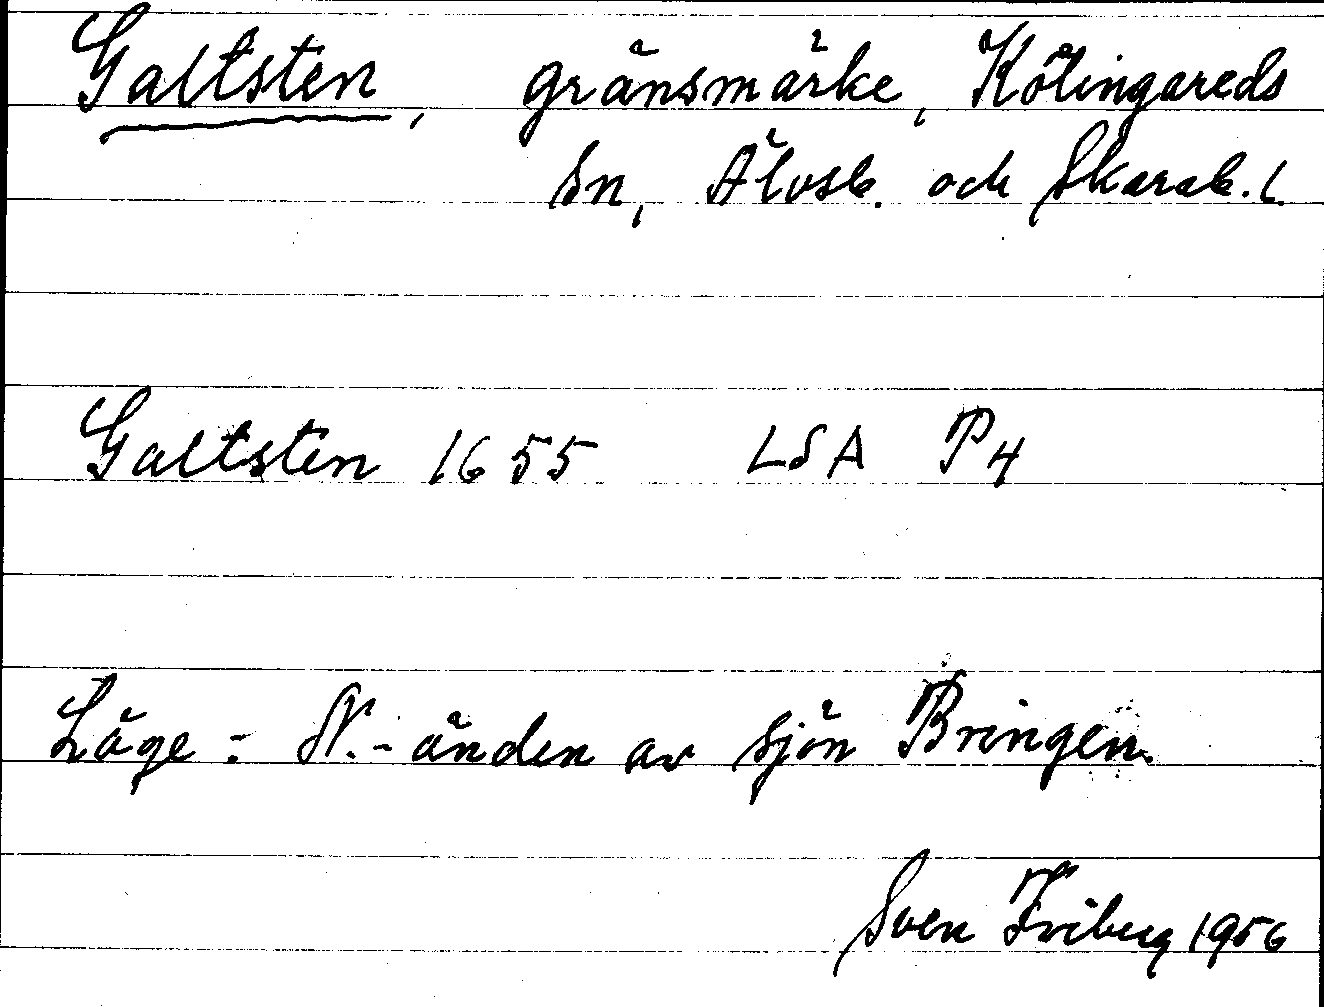 Galtsten, gränsmärke, Kölingareds
sn, Älvsb. och Skarab. l.
Galtsten 1655 LSA P4
Läge: N.-änden av sjön Bringen.
Sven Friberg 1956